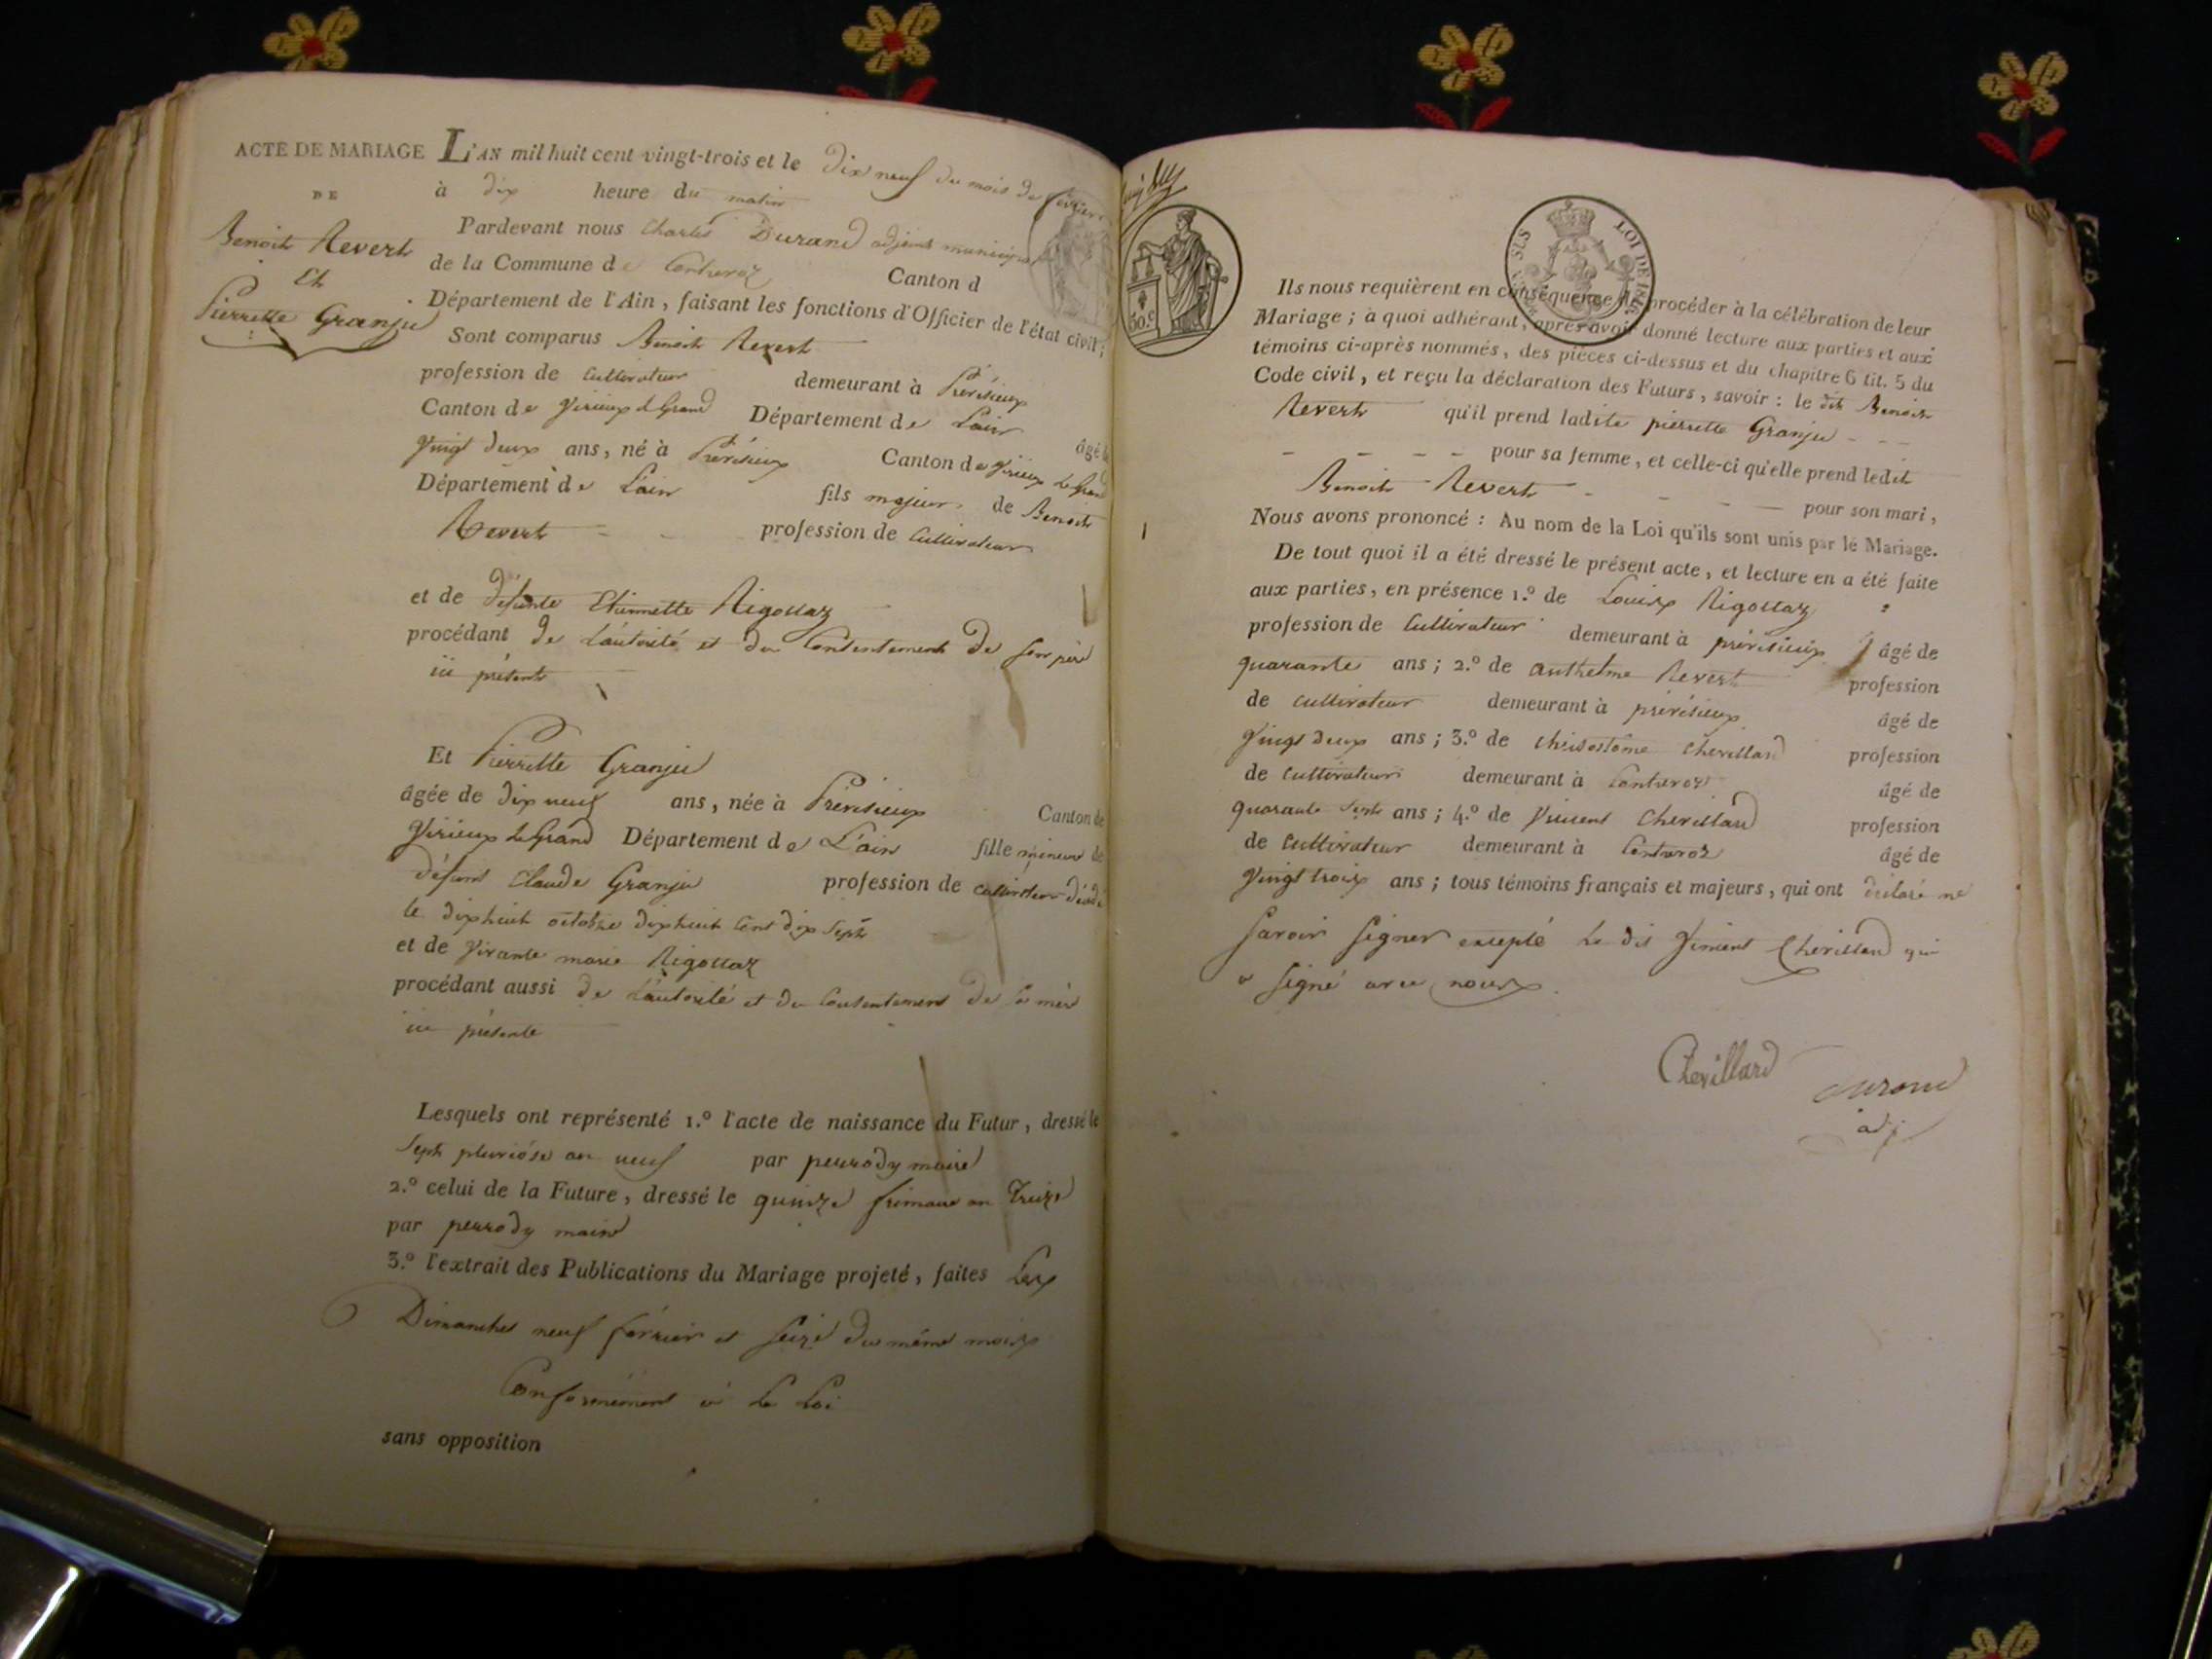 ACTE DE MARIAGE
DE
Benoit Revert
Et
Pierrette Granju
L'AN mil huit cent vingt-trois et le dix neuf du mois de février
à dix heure du matin
Pardevant nous Charles Durand adjoint municipal
de la Commune de Contrevoz Canton d
Département de l'Ain, faisant les fonctions d'Officier de l'état civil;
Sont comparus Benoit Revert
profession de cultivateur demeurant à Préveisieux
Canton de Virieux le Grand Département de Lain âgé de
vingt deux ans, né à Préveisieux Canton de Virieux le Grand
Département de Lain fils majeur de Benoit
Revert profession de Cultivateur
et de défunte Etiennette Rigottaz
procédant de L'autorité et du Consentement de son père
ici présent
Et Pierrette Granju
âgée de dix neuf ans, née à Préveisieux Canton de
Virieux le Grand Département de L'ain fille mineure de
défunt Claude Granju profession de cultivateur décédé
le dixhuit octobre dixhuit cent dix sept
et de vivante marie Rigottaz
procédant aussi de L'autorité et du Consentement de sa mère
ici présente
Lesquels ont représenté 1.º l'acte de naissance du Futur, dressé le
Sept pluviôse an neuf par perrody maire
2.º celui de la Future, dressé le quinze frimaire an Treize
par perrody maire
3.º l'extrait des Publications du Mariage projeté, faites Les
Dimanches neuf février et seize du même mois
Conformément à la Loi
sans opposition
60.c
LOI DE 1816
Ils nous requièrent en conséquence de procéder à la célébration de leur
Mariage; à quoi adhérant, après avoir donné lecture aux parties et aux
témoins ci-après nommés, des pièces ci-dessus et du chapitre 6 tit. 5 du
Code civil, et reçu la déclaration des Futurs, savoir: le dit Benoit
Revert qu'il prend ladite pierrette Granju - - -
- - - - pour sa femme, et celle-ci qu'elle prend ledit
Benoit Revert - - - pour son mari,
Nous avons prononcé: Au nom de la Loi qu'ils sont unis par le Mariage.
De tout quoi il a été dressé le présent acte, et lecture en a été faite
aux parties, en présence 1.º de Louis Rigottaz
profession de Cultivateur demeurant à préveisieux âgé de
quarante ans; 2.º de anthelme Revert profession
de cultivateur demeurant à préveisieux âgé de
vingt deux ans; 3.º de chrisostôme chevillard profession
de cultivateur demeurant à Contrevoz âgé de
quarante sept ans; 4.º de Vincent chevillard profession
de cultivateur demeurant à Contrevoz âgé de
vingt trois ans; tous témoins français et majeurs, qui ont déclaré ne
savoir signer excepté le dit Vincent Chevillard qui
a signé avec nous.
Chevillard
Durand
adj